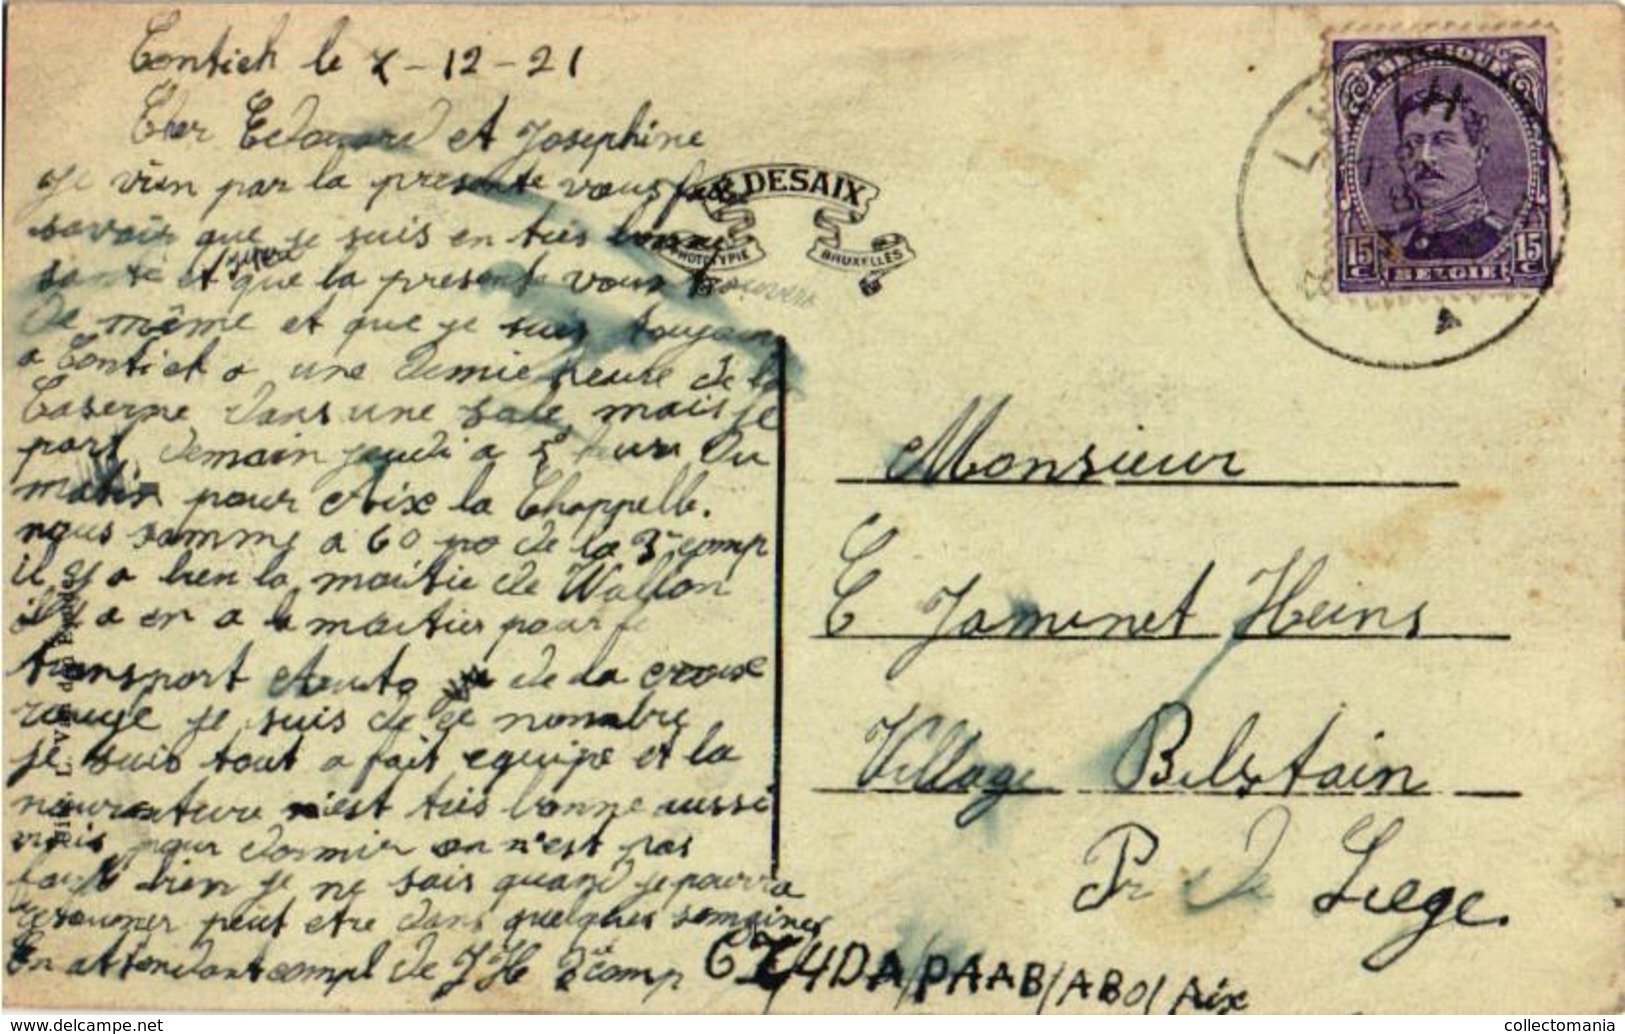 Contich le 7-12-21
Cher Edouard et Josephine
je vien par la presente vous faire
savoir que je suis en très bonne
santé et que la presente vous trouvera
de même et que je suis toujour
a Contich a une demie heure de la
Caserne dans une sale, mais je
part demain jeudi a 5 heure du
matin pour Aix la Chappelle.
nous somme a 60 de la 3e comp
il y a bien la moitie de Wallon
il y a en a la moitier pour le
transport Auto de la croix
rouge je suis de ce nombre
je suis tout a fait equipe et la
nouriture n'est très bonne aussi
mais pour dormir on n'est pas
bien je ne sais quand je pourra
retourner peut etre dans quelques semaines
En attendant compl de J H 2ie comp
C T/4DA/PAAB/ABO/Aix
DESAIX
PHOTOTYPIE
BRUXELLES
BELGIQUE
15 C BELGIE 15 C
A
Monsieur
E Jamenet Heins
Village Bilstain
Pr de Liege.
www.delcampe.net
collectomania